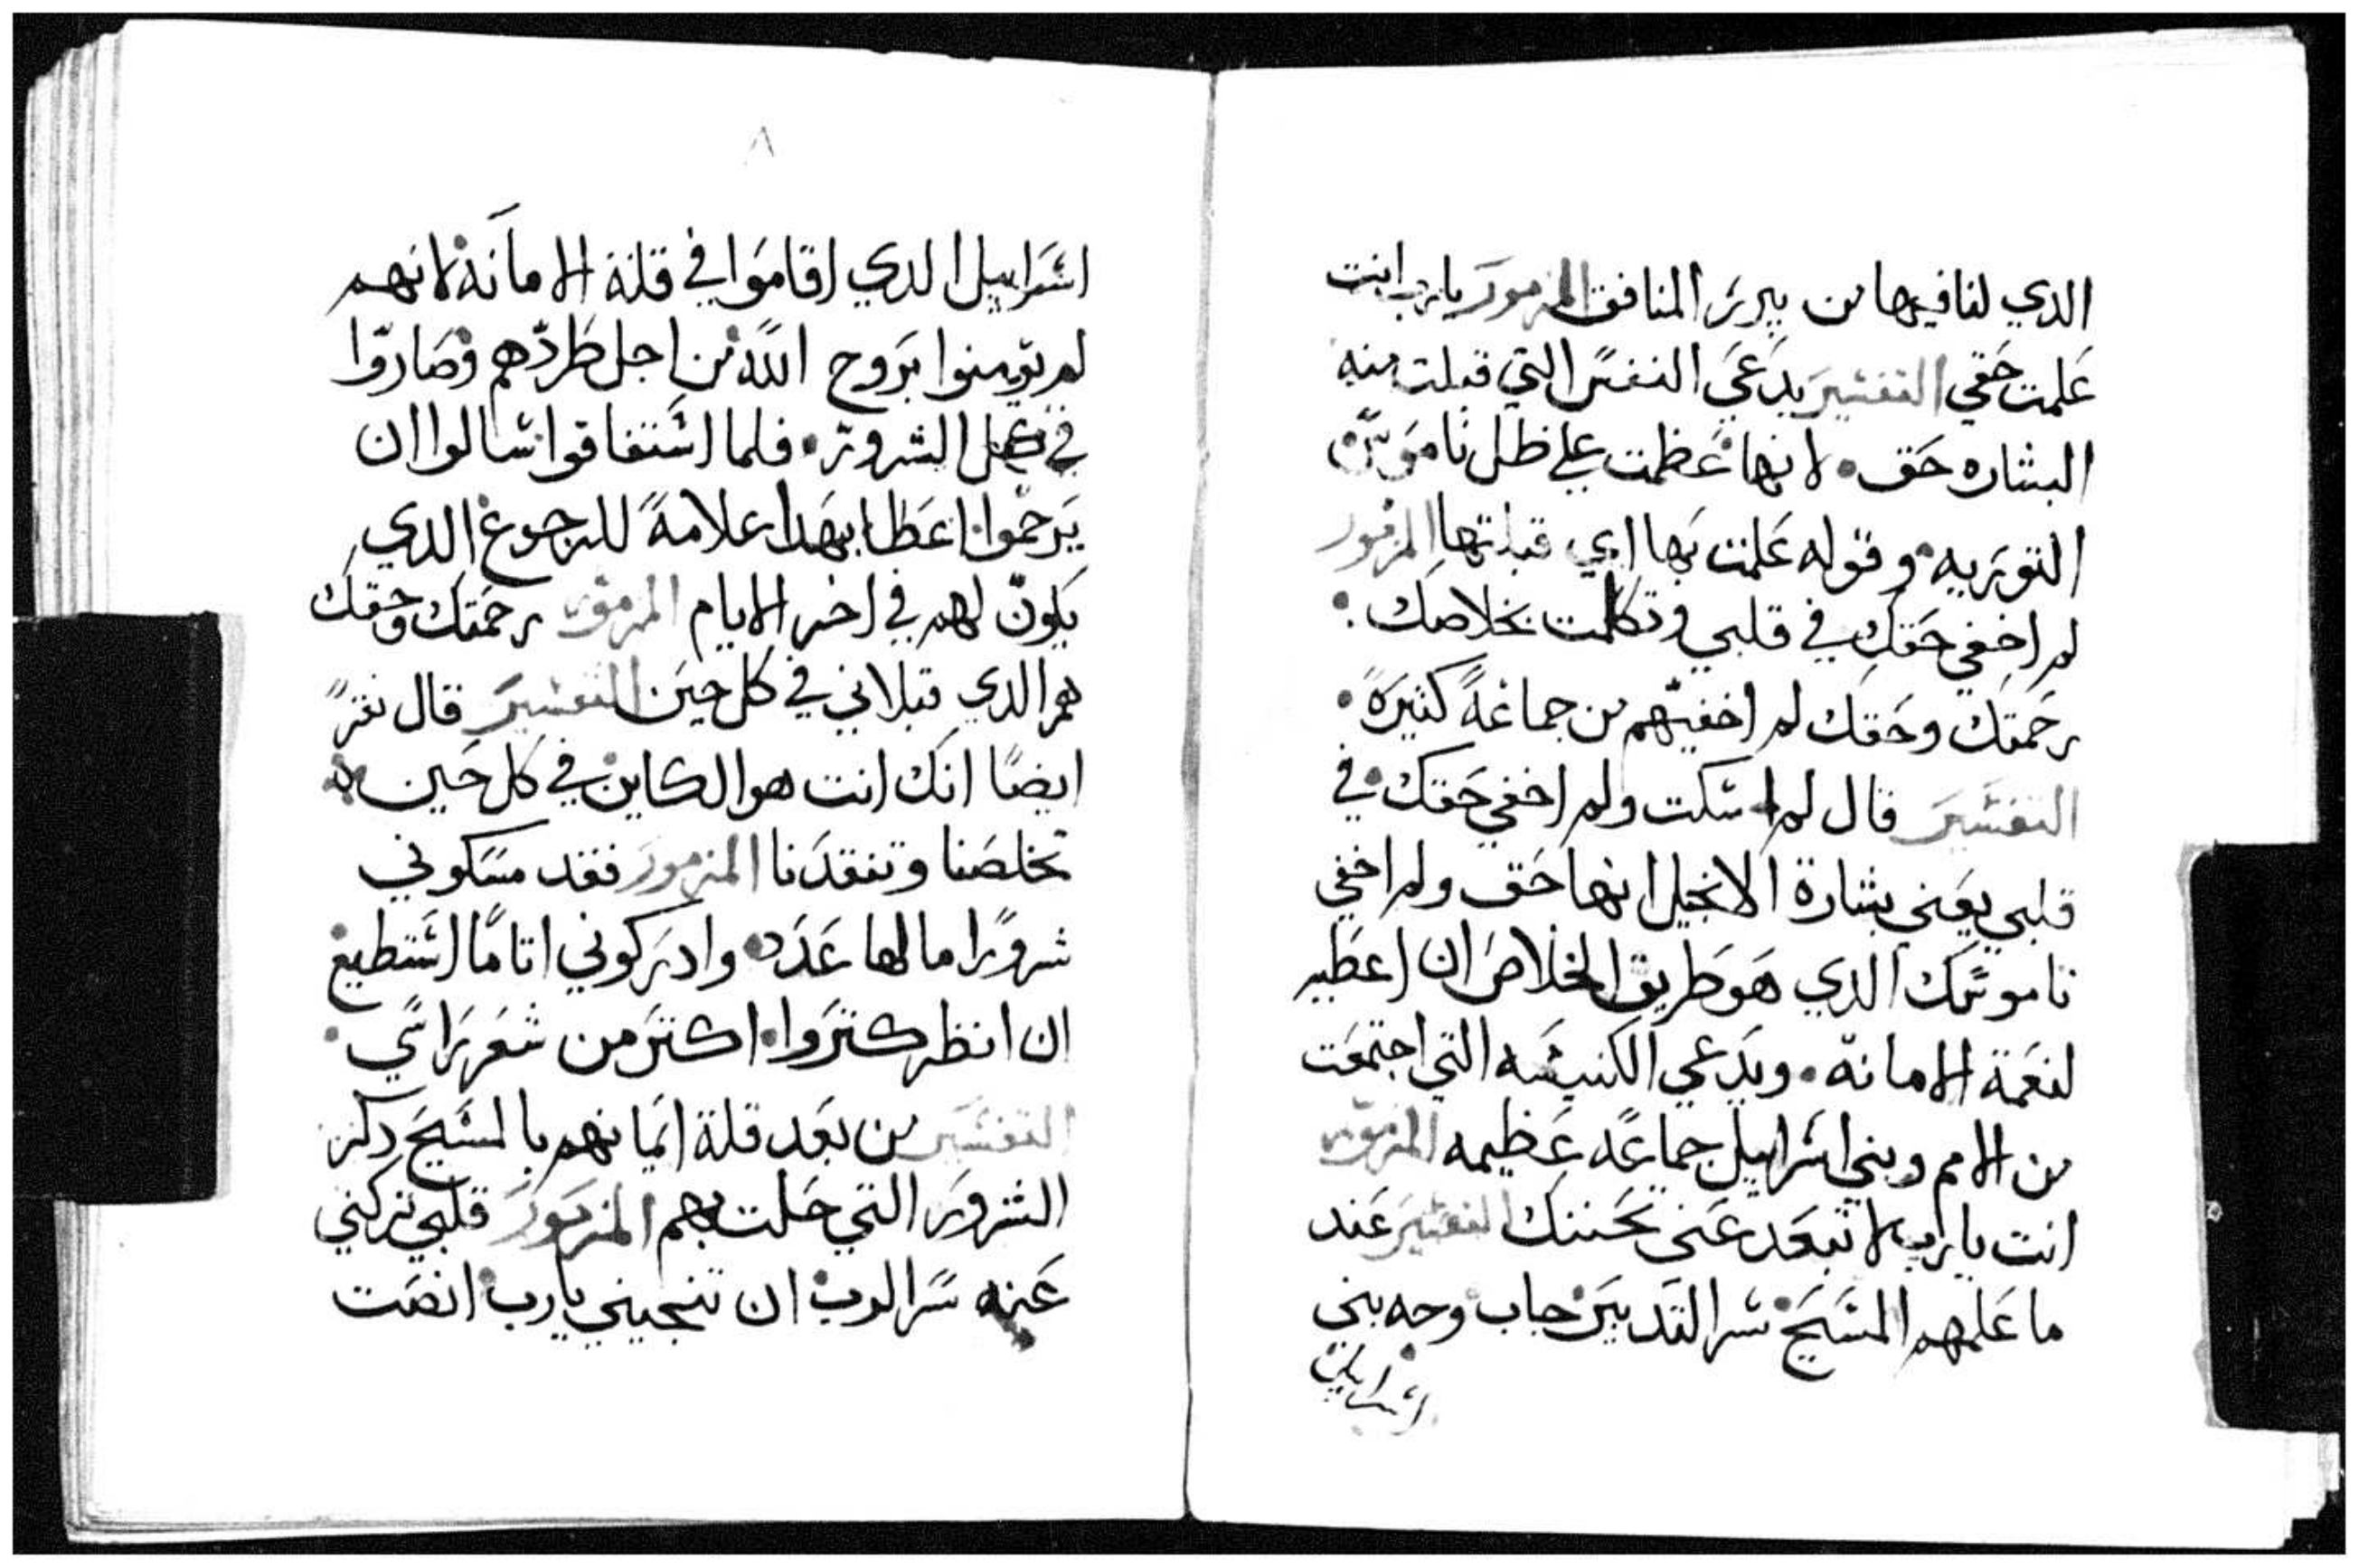 الدي لنا فيها من يبرر المنافق المزمور يا رب انت
علمت حقي التفسير يدعي النفس التي قبلت منه
البشاره حق لانها عظمت علي ظل ناموس
التوريه وقوله علمت بها اي قبلتها المزمور
لم اخفي حقك في قلبي وتكلمت بخلاصك
رحمتك وحقك لم اخفيهم من جماعة كثيرة
التفسير قال لم اسكت ولم اخفي حقك في
قلبي يعني بشارة الانجيل انها حق ولم اخفي
ناموسك الدي هو طريق الخلاص ان اعطيه
لنعمة الامانه ويدعي الكنيسه التي اجتمعت
من الامم وبني اسراييل جماعه عظيمه المزمور
انت يا رب لا تبعد عني تحننك التفسير عند
ما علمهم المسيح سر القديس جاب وجه بني
اسراييل
٨
اسراييل الدي اقاموا في قلة الامانة لانهم
لم يومنوا بروح الله من اجل طردهم وصاروا
في عمل الشرور فلما استفاقوا سالوا ان
يرحموا اعطا بهدا علامة للرجوع الدي
يكون لهم في اخر الايام المزمور رحمتك وحقك
هم الدي قبلاني في كل حين التفسير قال
ايضا انك انت هو الكاين في كل حين
تخلصنا وتفقدنا المزمور فقد مسكوني
شرورا ما لها عدد وادركوني اتاما استطيع
ان انظر كتروا اكتر من شعر راسي
التفسير من بعد قلة ايمانهم بالمسيح دكر
الشرور التي حلت بهم المزمور قلبي تركني
عنه سر الرب ان تنجيني يا رب انصت